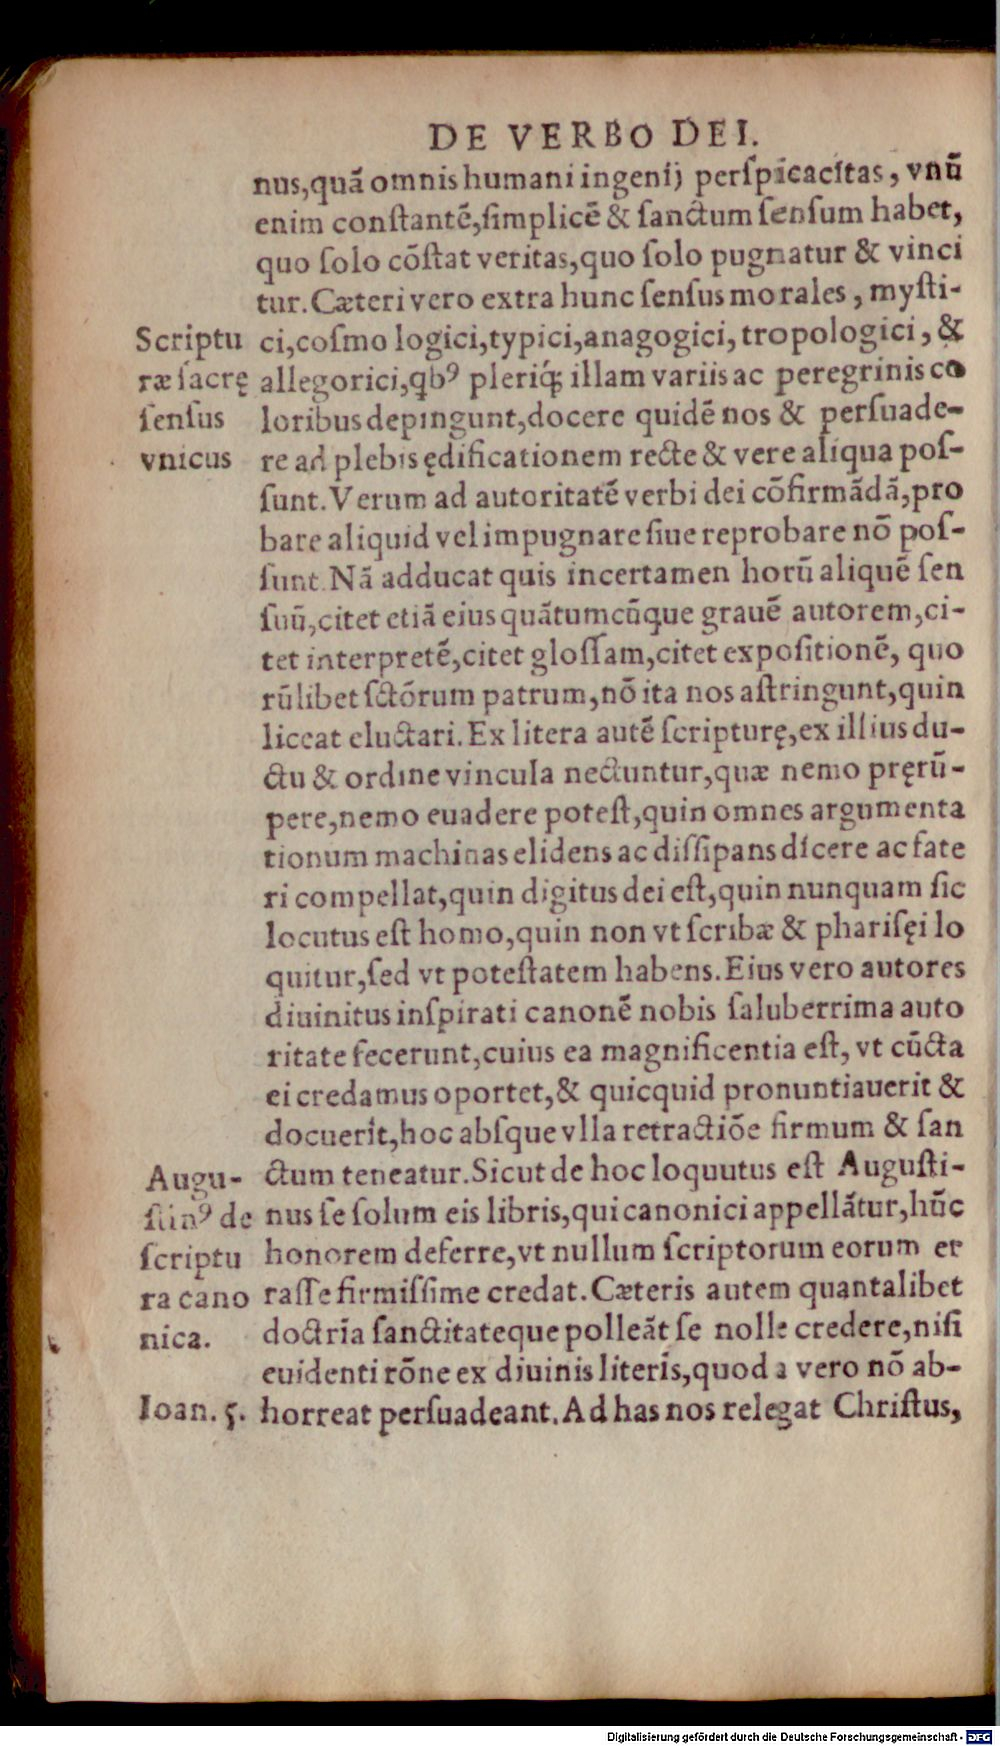 DE VERBO DEI.
nus,quã omnis humani ingenij perſpicacitas, vnũ
enim conſtantẽ,ſimplicẽ & ſanctum ſenſum habet,
quo ſolo cõſtat veritas,quo ſolo pugnatur & vinci
tur. Cæteri vero extra hunc ſenſus morales, myſti-
Scriptu
ci,coſmo logici,typici,anagogici, tropologici, &
ræ ſacrę
allegorici,qbꝰ pleriq́ꝫ illam variis ac peregrinis co
ſenſus
loribus depingunt,docere quidẽ nos & perſuade-
vnicus
re ad plebis ędificationem recte & vere aliqua poſ-
ſunt. Verum ad autoritatẽ verbi dei cõfirmãdã,pro
bare aliquid vel impugnare ſiue reprobare nõ poſ-
ſunt. Nã adducat quis incertamen horũ aliquẽ ſen
ſuũ,citet etiã eius quãtumcũque grauẽ autorem,ci-
tet interpretẽ,citet gloſſam,citet expoſitionẽ, quo
rũlibet ſctõrum patrum,nõ ita nos aſtringunt,quin
liceat eluctari. Ex litera autẽ ſcripturę,ex illius du-
ctu & ordine vincula nectuntur,quæ nemo pręrũ-
pere,nemo euadere poteſt,quin omnes argumenta
tionum machinas elidens ac diſſipans dicere ac fate
ri compellat,quin digitus dei eſt,quin nunquam ſic
locutus eſt homo,quin non vt ſcribæ & phariſęi lo
quitur,ſed vt poteſtatem habens. Eius vero autores
diuinitus inſpirati canonẽ nobis ſaluberrima auto
ritate fecerunt,cuius ea magnificentia eſt, vt cũcta
ei credamus oportet,& quicquid pronuntiauerit &
docuerit,hoc abſque vlla retractiõe firmum & ſan
Augu-
ctum teneatur. Sicut de hoc loquutus eſt Auguſti-
ſtinꝰ de
nus ſe ſolum eis libris,qui canonici appellãtur,hũc
ſcriptu
honorem deferre,vt nullum ſcriptorum eorum er
ra cano
raſſe firmiſſime credat. Cæteris autem quantalibet
nica.
doctrĩa ſanctitateque polleãt ſe nolle credere,niſi
euidenti rõne ex diuinis literis,quod a vero nõ ab-
Ioan. 5.
horreat perſuadeant. Ad has nos relegat Chriſtus,
Digitalisierung gefördert durch die Deutsche Forschungsgemeinschaft - DFG